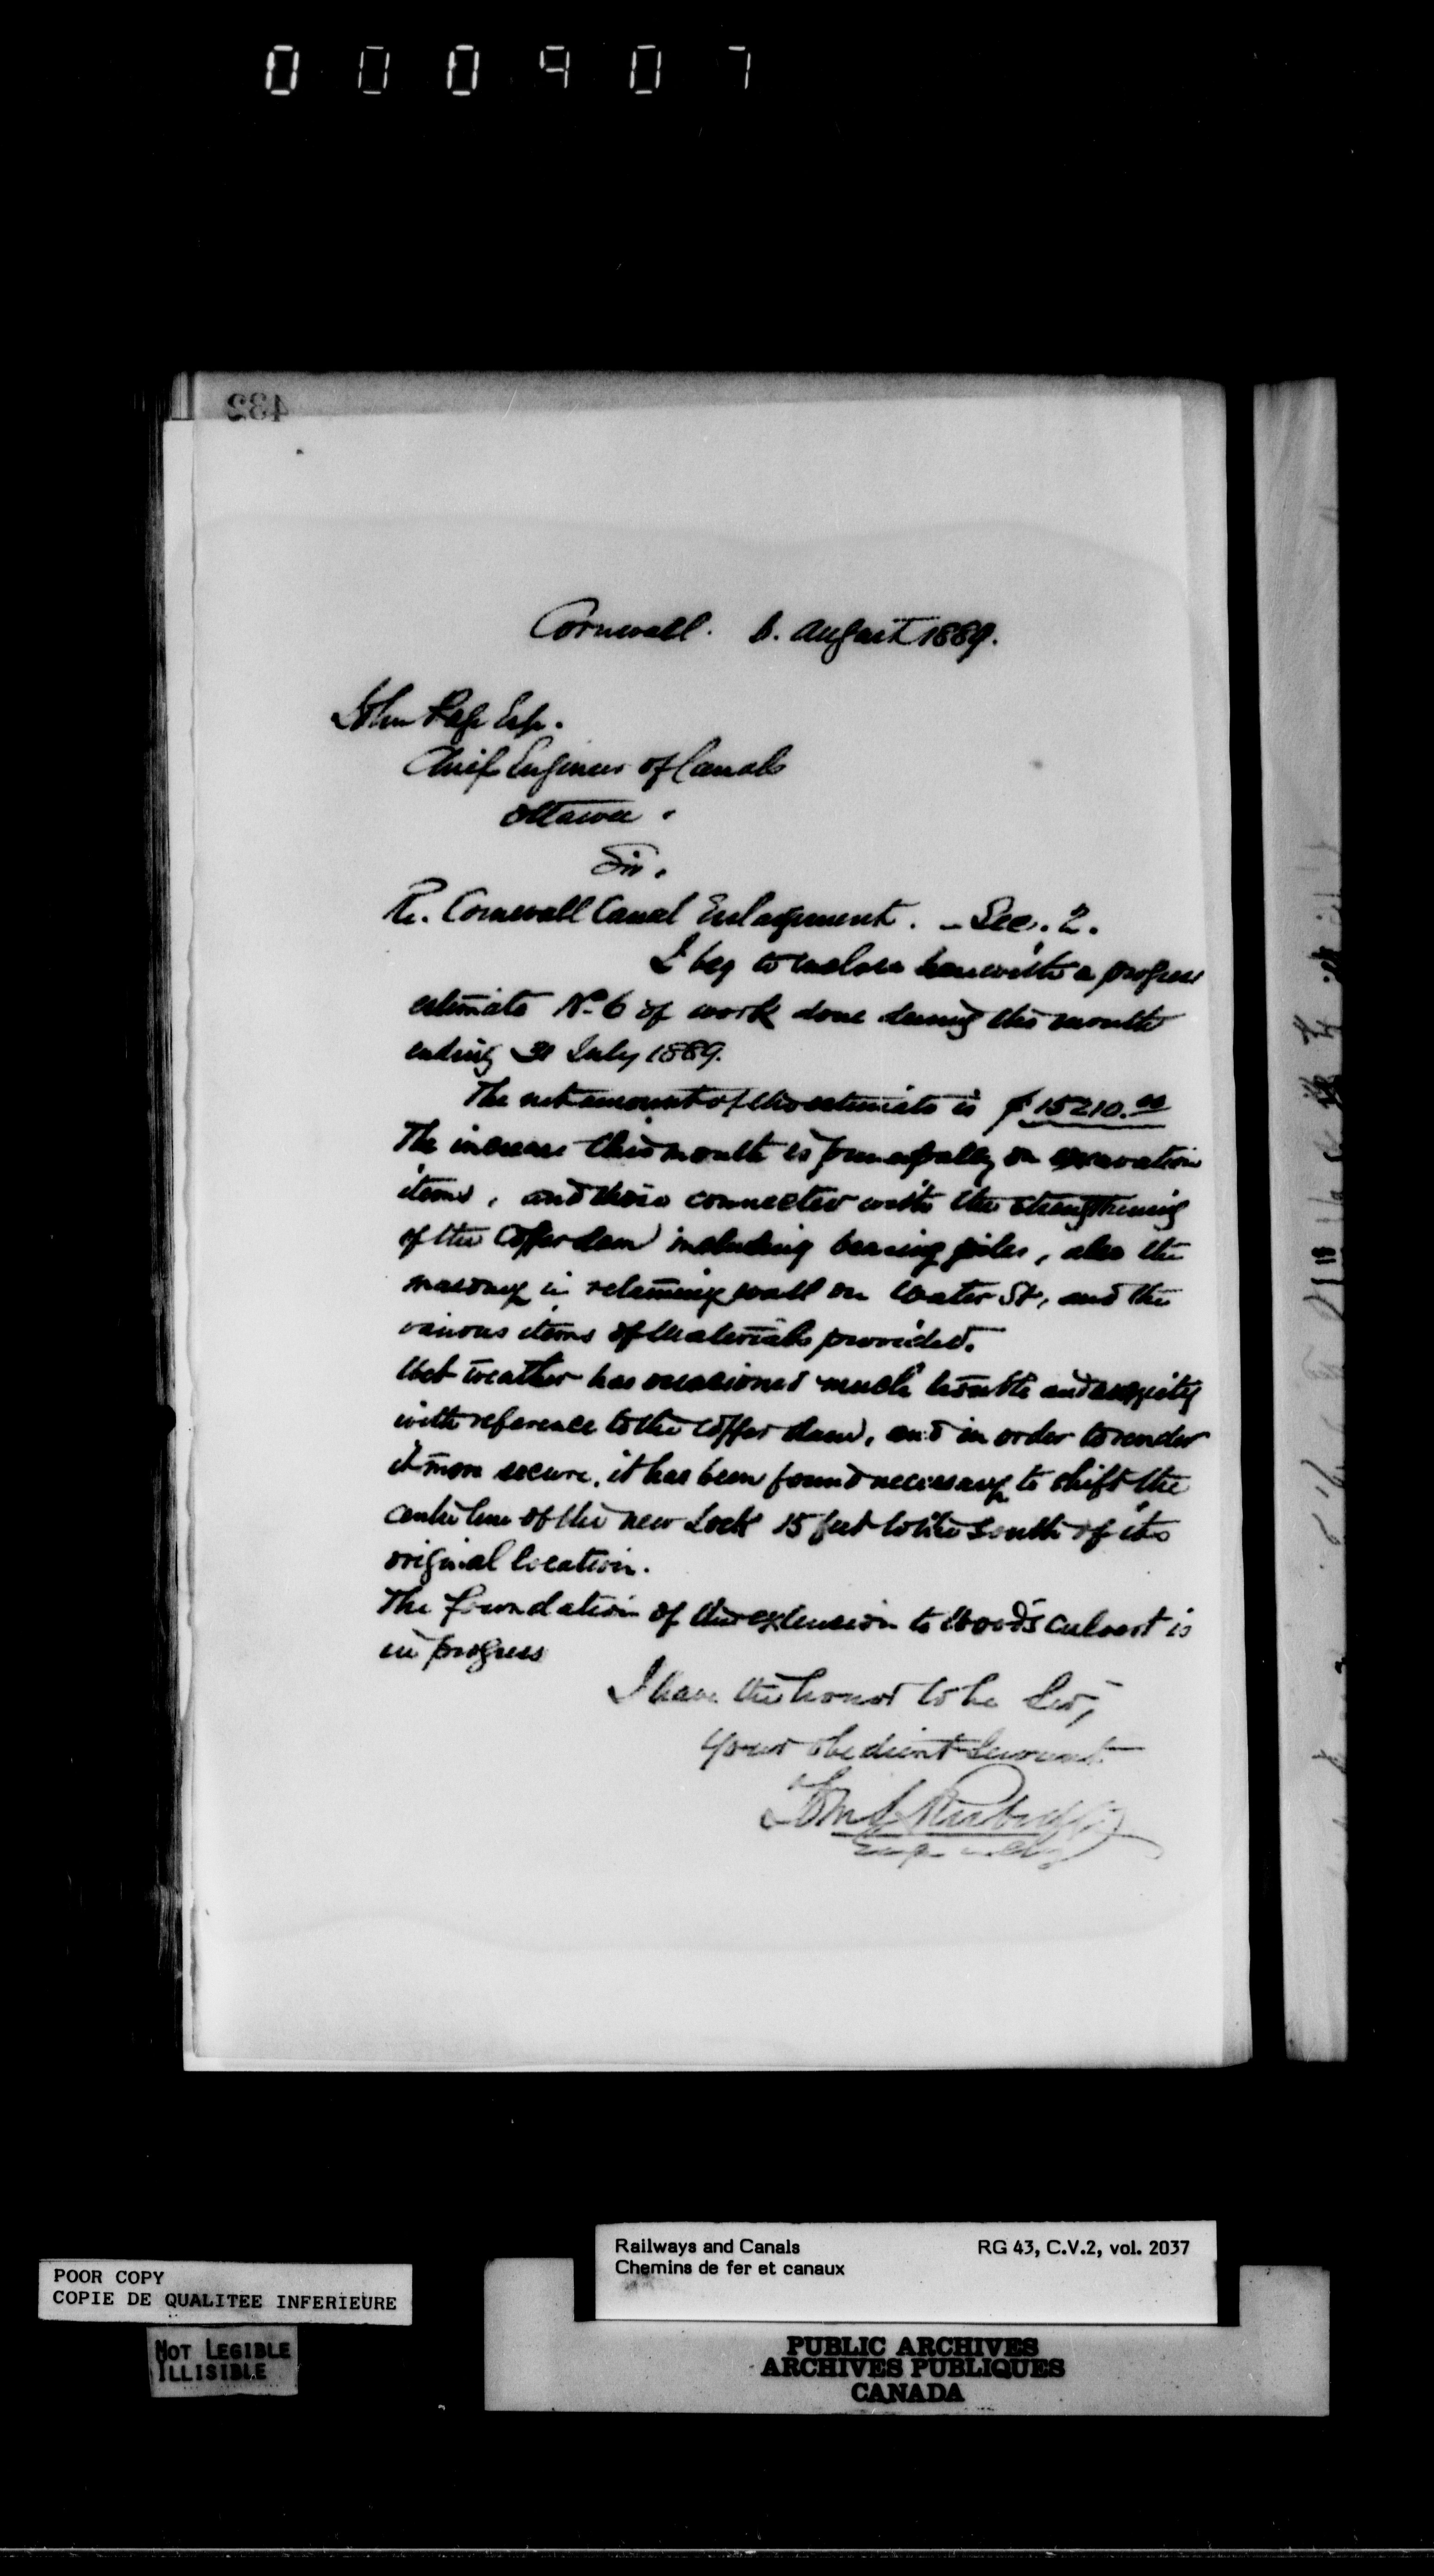 000907
432
Cornwall. 6. August 1889.
John Page Esq.
Chief Engineer of Canals
Ottawa.
Sir.
Re. Cornwall Canal Enlargement. - Sec. 2.
I beg to enclose herewith a progress
estimate No. 6 of work done during the month
ending 31 July 1889.
The net amount of this estimate is $15210.00
The increase this month is principally on excavation
items, and those connected with the strengthening
of the Coffer dam including bearing piles, also the
masonry in retaining wall on Water St, and the
various items of Materials provided.
Wet weather has occasioned much trouble and anxiety
with reference to the Coffer dam, and in order to render
it more secure, it has been found necessary to shift the
centre line of the new Lock 15 feet to the South of its
original location.
The foundation of the extension to Wood's Culvert is
in progress
I have the honor to be Sir,
Your obedient Servant
Railways and Canals RG 43, C.V.2, vol. 2037
Chemins de fer et canaux
POOR COPY
COPIE DE QUALITEE INFERIEURE
NOT LEGIBLE
ILLISIBLE
PUBLIC ARCHIVES
ARCHIVES PUBLIQUES
CANADA